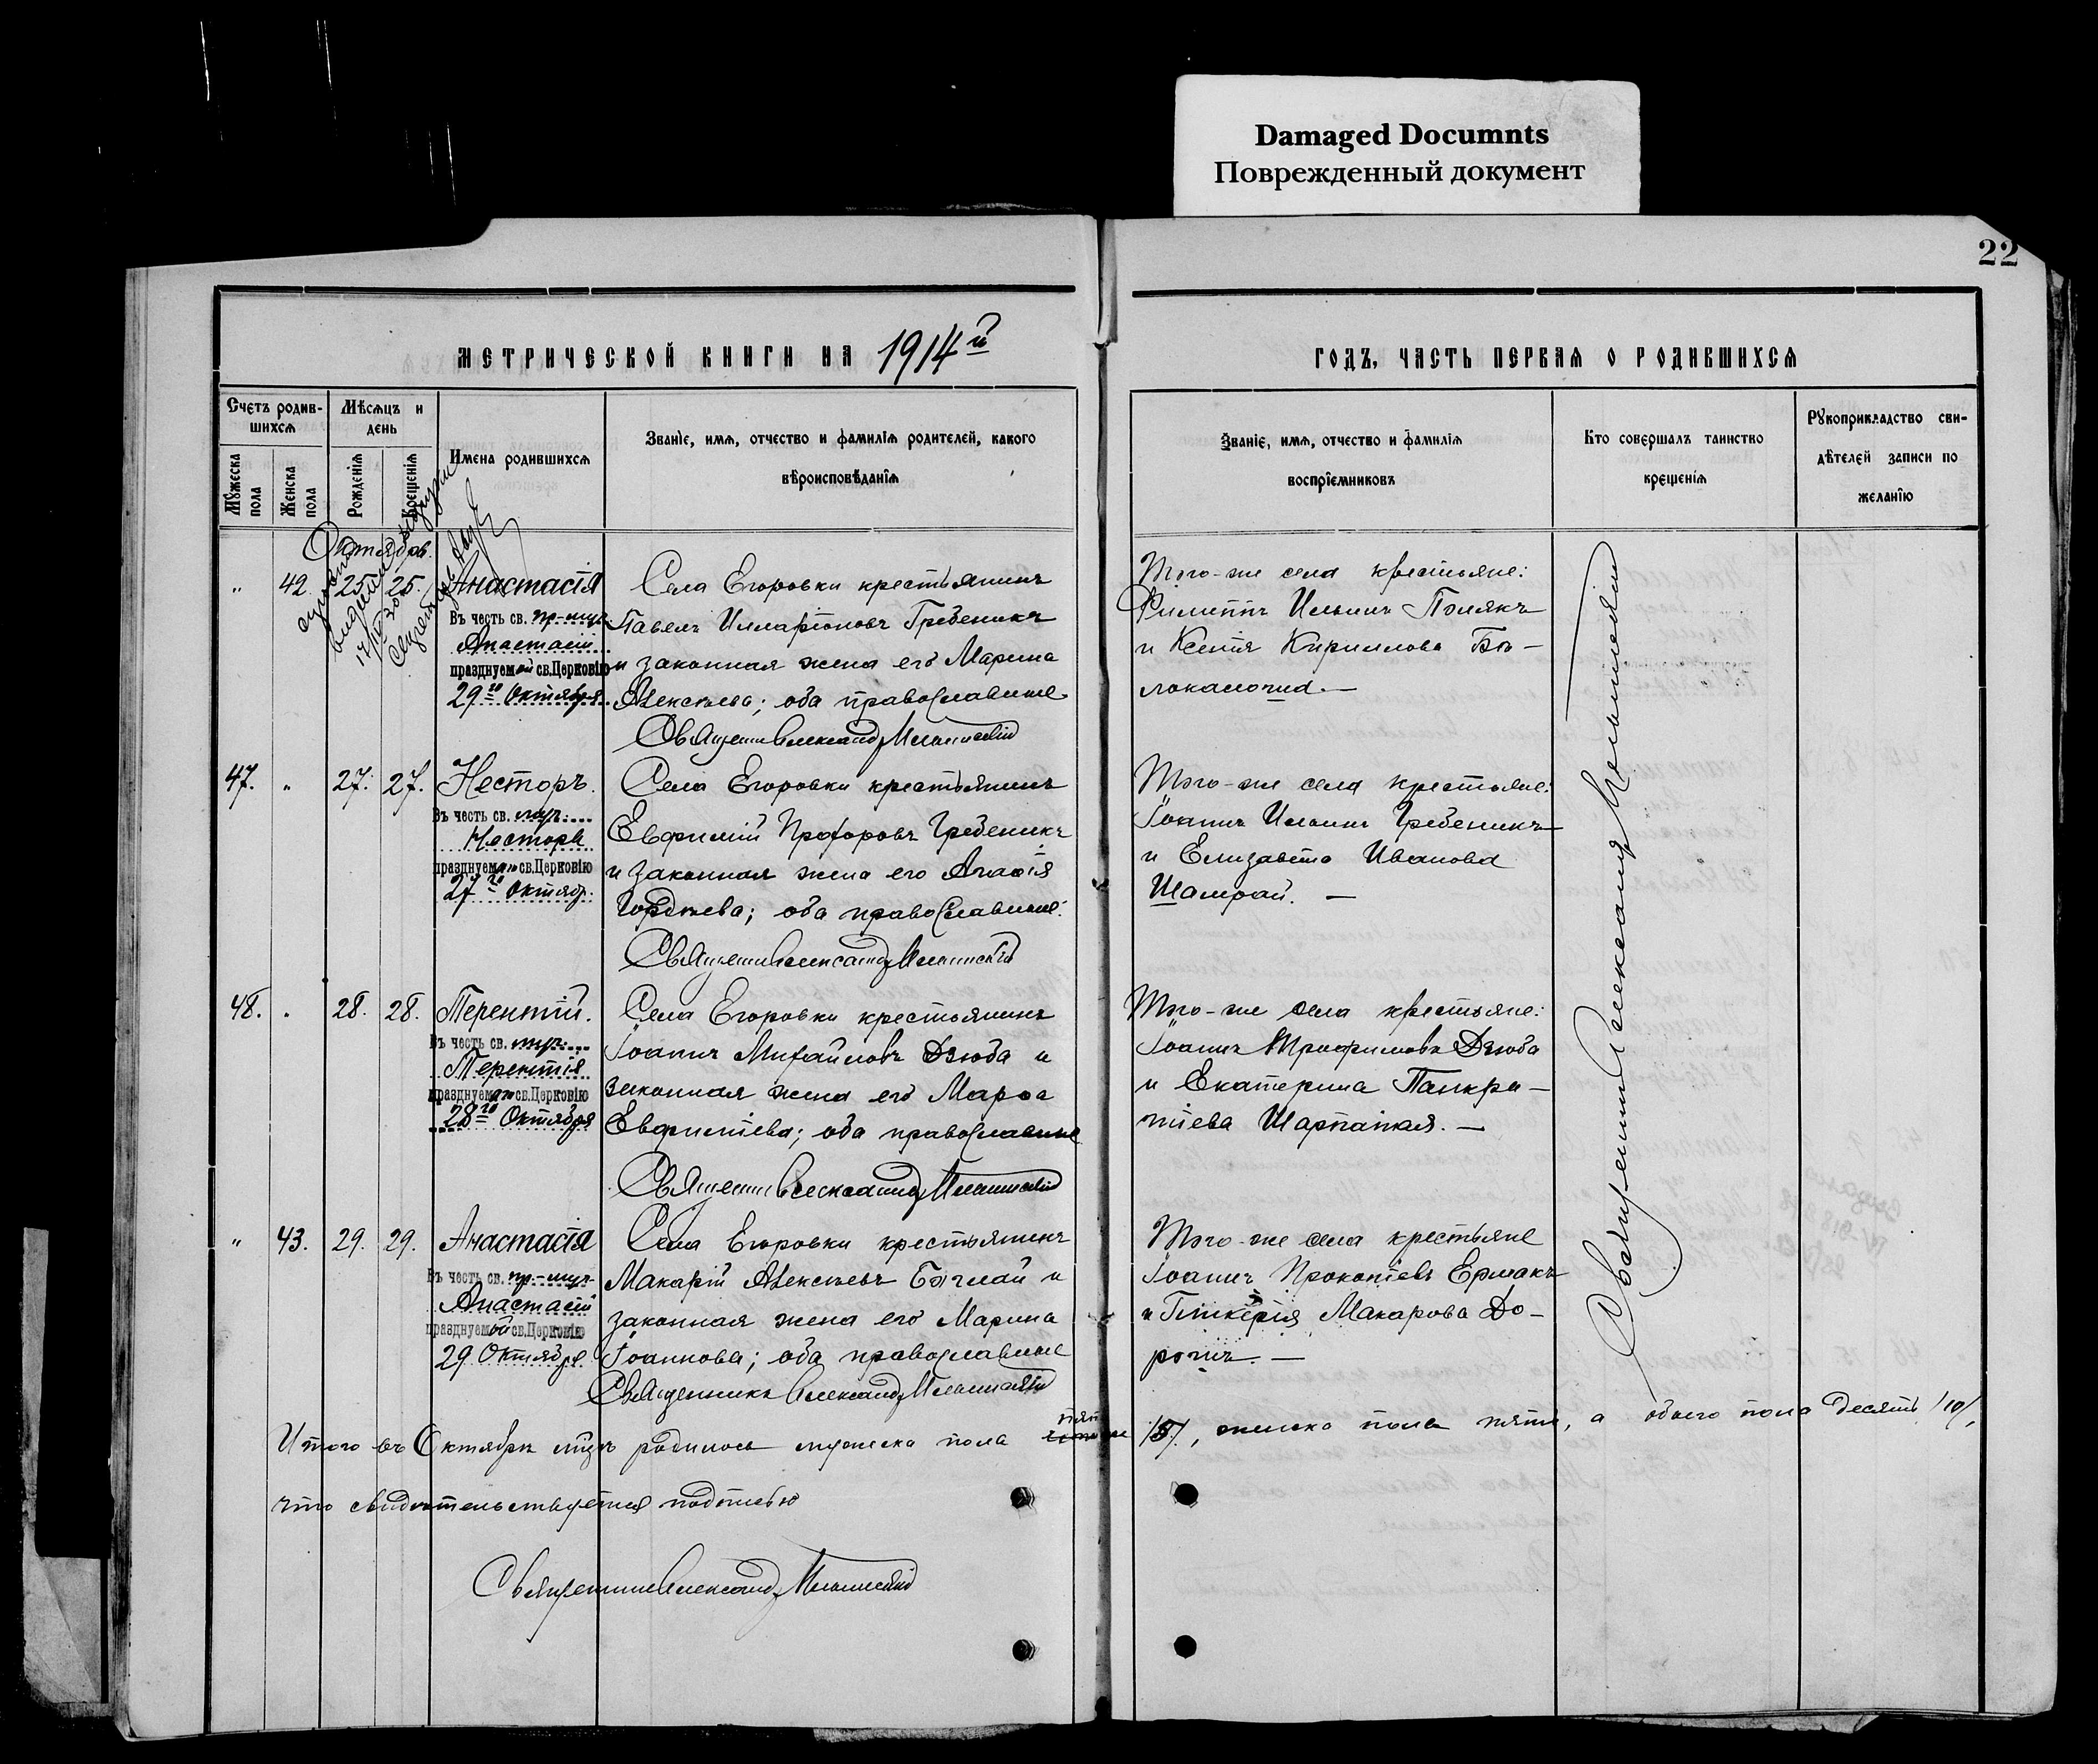 Damaged Documnts
Поврежденный документ
22
МЕТРИЧЕСКОЙ КНИГИ НА 1914й
ГОДЪ, ЧАСТЬ ПЕРВАЯ О РОДИВШИХСЯ
Счетъ родив-
шихся
Мѣсяцъ и
день
Мужеска
пола
Женска
пола
Рожденія
Крещенія
Имена родившихся
Званіе, имя, отчество и фамилія родителей, какого
вѣроисповѣданія
Званіе, имя, отчество и фамилія
воспріемниковъ
Кто совершалъ таинство
крещенія
Рукоприкладство сви-
дѣтелей записи по
желанію
Октябрь.
" 42. 25. 25. Анастасія
Въ честь св. пр.-муч.
Анастасіи
празднуемой св.Церковію
29го Октября
Села Егоровки крестьянинъ
Павелъ Илларіоновъ Гребеникъ
и законная жена его Марина
Алексѣева; оба православные
Священникъ Александръ
Того-же села крестьяне:
Филиппъ Ильинъ Полякъ
и Ксенія Кириллова Бѣ-
локапочна.—
47. " 27. 27. Несторъ.
Въ честь св. муч.
Нестора
празднуемаго св.Церковію
27го Октябр.
Села Егоровки крестьянинъ
Евфимій Прохоровъ Гребеникъ
и законная жена его Агафія
Гордѣева; оба православные.
Священникъ Александръ
Того-же села крестьяне:
Іоаннъ Ильинъ Гребеникъ
и Елизавета Иванова
Шамрай. —
48. " 28. 28. Терентій.
Въ честь св. муч.
Терентія
празднуемаго св.Церковію
28го Октября
Села Егоровки крестьянинъ
Іоаннъ Михайловъ Дзюба и
законная жена его Марѳа
Евфиміева; оба православные
Священникъ Александръ
Того-же села крестьяне:
Іоаннъ Трофимовъ Дзюба
и Екатерина Панкра-
тіева Шарпатая. —
" 43. 29. 29. Анастасія
Въ честь св. пр.-муч.
Анастасіи
празднуемой св.Церковію
29 Октября
Села Егоровки крестьянинъ
Макарій Алексѣевъ и
законная жена его Марина
Іоаннова; оба православные
Священникъ Александръ
Того-же села крестьяне
Іоаннъ Прокопіевъ Ермакъ
и Гликерія Макарова До-
рошъ. —
Священникъ Александръ
Итого въ Октябрѣ мцѣ родилось мужеска пола пять /5/, женска пола пять, а обоего пола десять /10/,
что свидѣтельствуется подписью
Священникъ Александръ